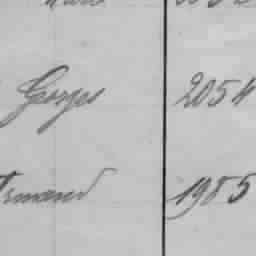 Georges 2054
Armand 1985